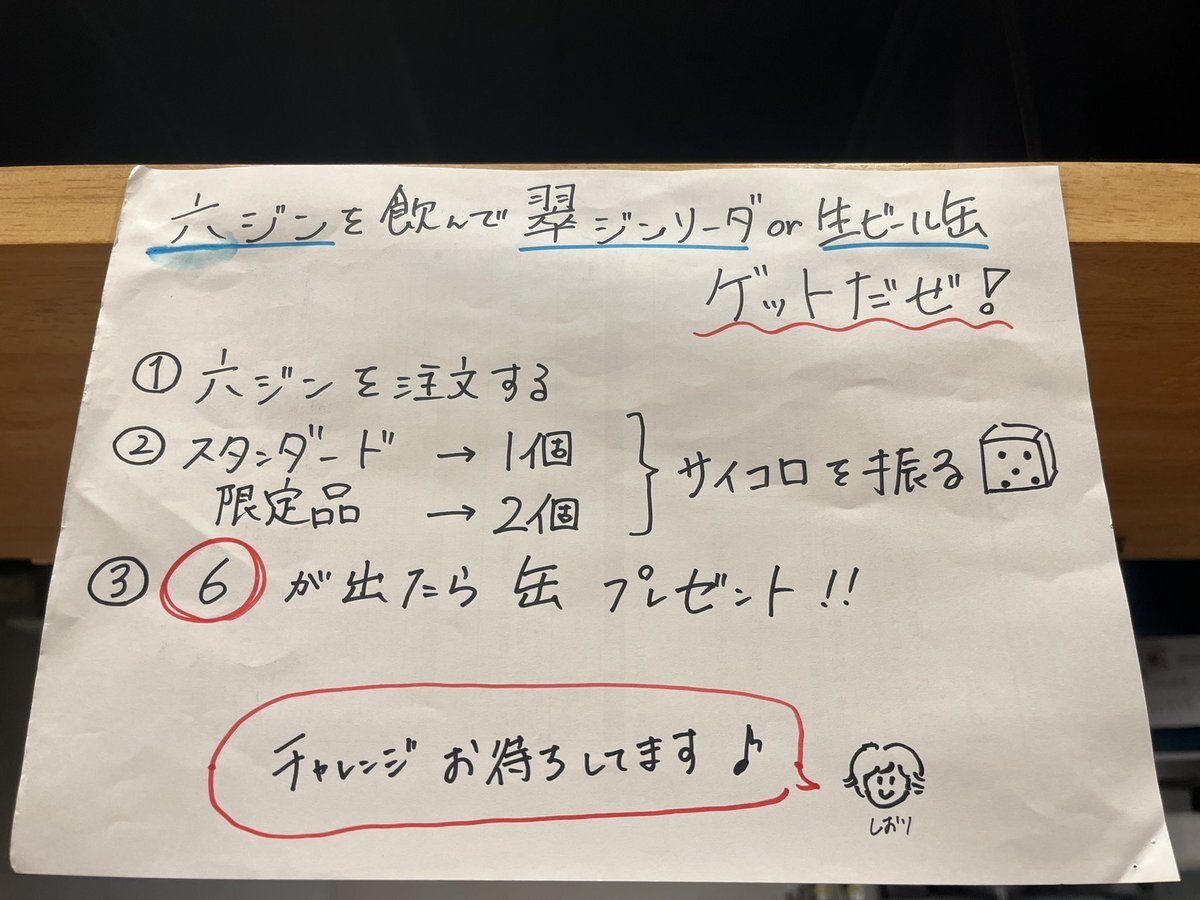 六ジンを飲んで翠ジンソーダor生ビール缶
ゲットだぜ!
① 六ジンを注文する
② スタンダード → 1個
限定品 → 2個
サイコロを振る
③ 6が出たら缶プレゼント!!
チャレンジお待ちしてます♪
しおり